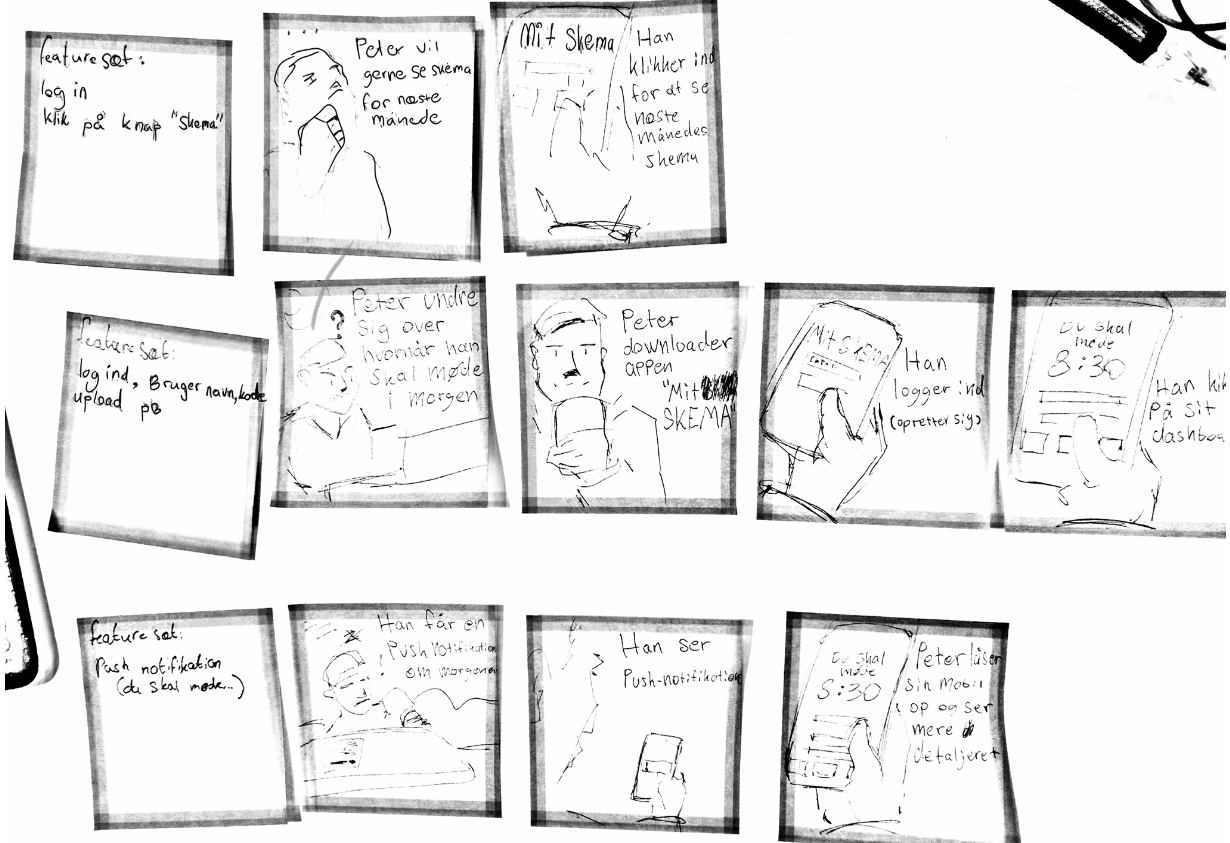 feature sæt:
log in
klik på knap "Skema"
Peter vil
gerne se skema
for næste
månede
Mit Skema
Han
klikker ind
for at se
næste
månedes
skema
feature sæt:
log ind, Bruger navn, kode
upload pB
?
Peter undre
sig over
hvornår han
skal møde
i morgen
Peter
downloader
appen
"Mit
SKEMA"
Mit SKEMA
Han
logger ind
(opretter sig)
Du skal
møde
8:30
Han
På sit
feature sæt:
Push notifikation
(du skal møde...)
Han får en
Push notifikation
om morgenen
Han ser
Push-notifikation
Du skal
møde
8:30
Peter låser
sin mobil
op og ser
mere
detaljeret